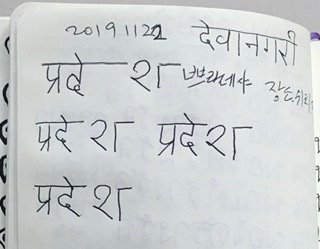 20191122 देवानगरी
प्रदे श쁘라데샤
प्रदेश प्रदेश
प्रदेश